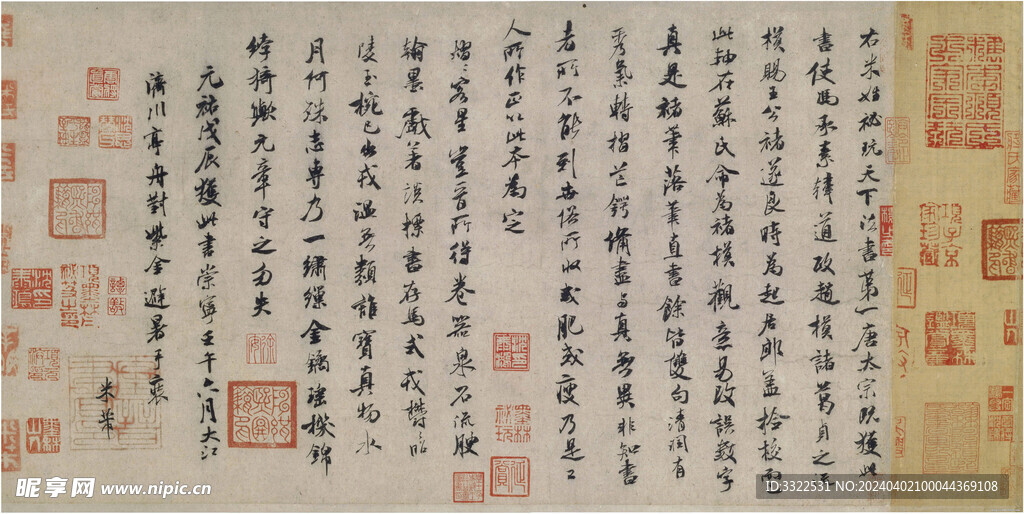 右米姓秘玩天下法書第一唐太宗既獲此
書使馮承素韓道政趙模諸葛貞之流
模賜王公褚遂良時為起居郎蓋檢校而
此軸在蘇氏命為褚模觀意易改誤數字
真是褚筆落筆直書餘皆雙勾清潤有
秀氣轉摺芒鍔備盡与真無異非知書
者所不能到世俗所收或肥或瘦乃是工
人所作正以此本為定
熠熠客星豈晉所得卷器泉石流腴
翰墨戲著談標書存馬式鬱昭
陵玉椀已出戎溫無類誰寶真物水
月何殊志專乃一繡繅金鐍瑤機錦
綷猗歟元章守之勿失
元祐戊辰獲此書崇寧壬午六月大江
濟川亭舟對紫金避暑手裝
米芾
昵享网 www.nipic.cn
ID:3322531 NO:20240402100044369108